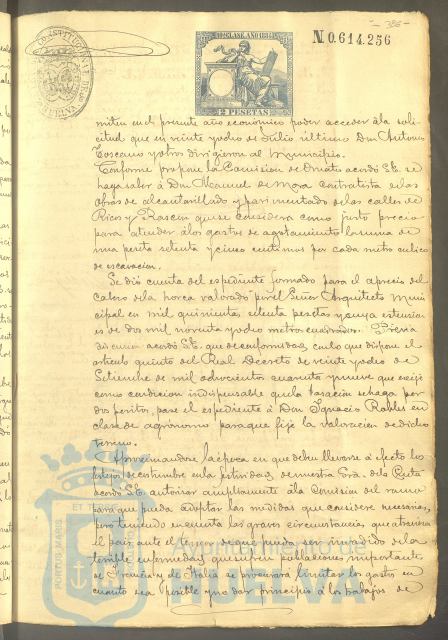 CLASE AÑO 1884
Nº 0.614.256
2 PESETAS
miten en el presente año económico poder acceder á la soli-
citud que en veinte y ocho de Julio último Don Antonio
Toscano y otros dirigieron al Municipio.
Conforme propone la Comision de Ornato acordó S.E. se
haga saber á Don Manuel de Mora contratista de las
obras de alcantarillado y pavimentado de las calles de
Rico y Rascon que se considera como justo precio
para atender á los gastos de agotamiento la suma de
una peseta setenta y cinco centimos por cada metro cubico
de escavacion.
Se dió cuenta del espediente formado para el aprecio del
Cabezo de la horca valorado por el Señor Arquitecto Muni-
cipal en mil quinientas setenta pesetas y cuya estension
es de dos mil noventa y ocho metros cuadrados. Prévia
discusion acordó S.E. que de conformidad con lo que dispone el
artículo quinto del Real Decreto de veinte y ocho de
Setiembre de mil ochocientos cuarenta y nueve que exije
como condicion indispensable que la tasacion se haga por
dos peritos, pase el espediente á Don Ignacio Robles en
clase de agrónomo para que fije la valoracion de dicho
terreno.
Aproximandose la época en que deben llevarse á efecto los
festejos de costumbre en la festividad de nuestra Sra. de la Cinta
acordó S.E. autorizar ampliamente á la Comision del ramo
para que pueda adoptar las medidas que considere necesarias,
pero teniendo en cuenta las graves circunstancias que atraviesa
el pais ante el temor de que pueda ser invadido de la
terrible enfermedad que sufren poblaciones importantes
de Francia y de Italia se procurará limitar los gastos en
cuanto sea posible y no dar principio á los trabajos de
PORTUS MARIS
ET T
Ayuntamiento de
HUELVA